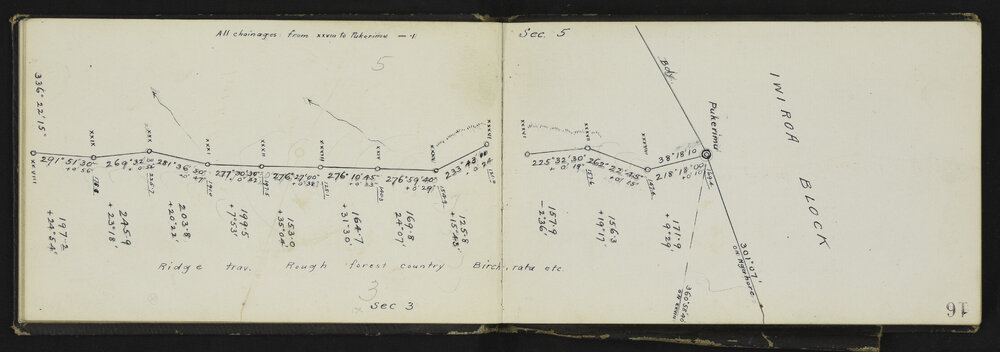 All chainages from XXVIII to Pukerimu — ·1
Sec. 5
5
336° 22' 15"
Bdy.
Pukerimu
IWIROA
BLOCK
XXVIII
XXIX
XXX
XXXI
XXXII
XXXIII
XXXIV
XXXV
XXXVI
XXXVI
XXXVII
XXXVIII
291° 51' 30"
+0' 56"
269° 32'
281° 36' 30"
277° 30' 30"
276° 27' 00"
+0' 38"
276° 10' 45"
+0' 33"
276° 59' 40"
+0' 29"
233° 43' 00"
+0' 24"
225° 32' 30"
+0' 19"
262° 22' 45"
+0' 15"
38° 18' 10
218° 18' 00"
+0' 10"
197·2
+24° 54'
245·9
+23° 18'
203·8
+20° 22'
199·5
+7° 53'
153·0
+35° 04'
164·7
+31° 30'
169·8
24° 07'
125·8
+15° 43'
157·9
-2° 36'
156·3
+19° 17'
171·9
+9° 29'
301° 07'
360° 58' 40
Ridge trav. Rough forest country Birch, rata etc.
3
Sec 3
16